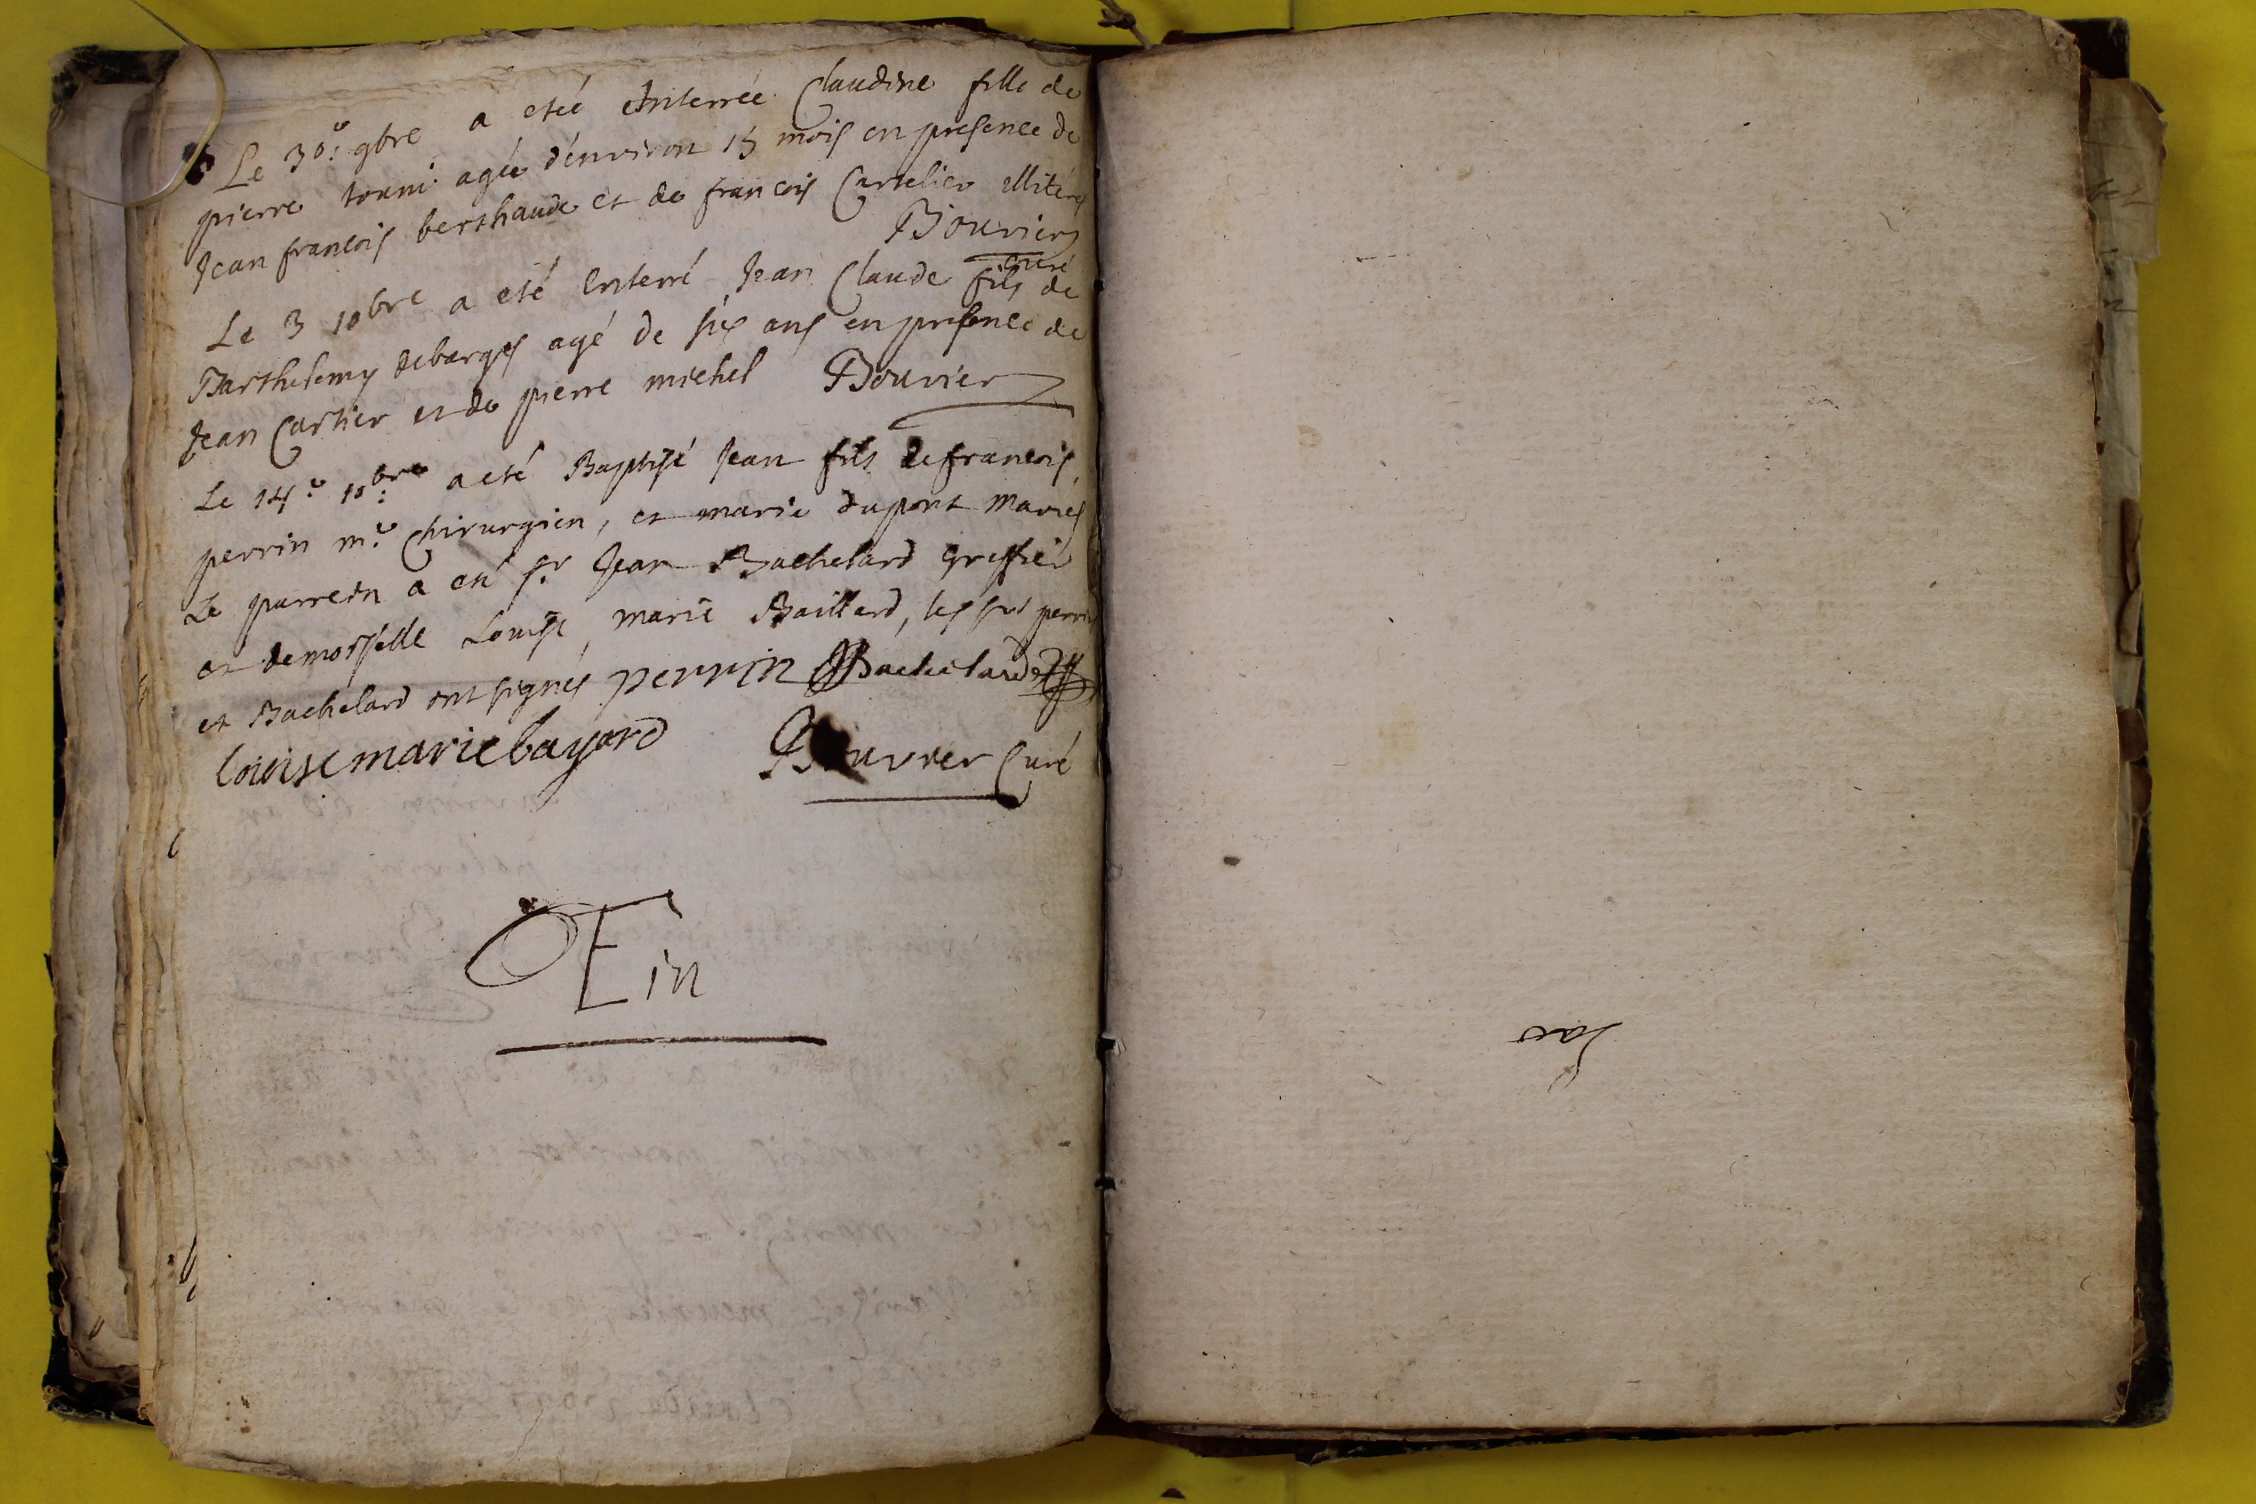 Le 30.e 9bre a eteé Enterrée Claudine fille de
pierre tourni agée d'environ 15 mois en presence de
Jean francois berthaude et de francois Cartelier illiterés
Bouvier
curé
Le 3 10bre a eté Enterré Jean Claude fils de
Barthelemy debarges agé de six ans en presence de
Jean Cartier et de pierre michel Bouvier
Le 14.e 10bre a eté Baptisé Jean fils de francois
perrin m.e Chirurgien, et marie dupont mariés
Le parrein a eté sr Jean Bachelard greffier
et demoiselle Louise marie Baillard, les srs perrin
et Bachelard ont signés perrin Bachelard
louise marie bayard Bouvier Curé
Fin